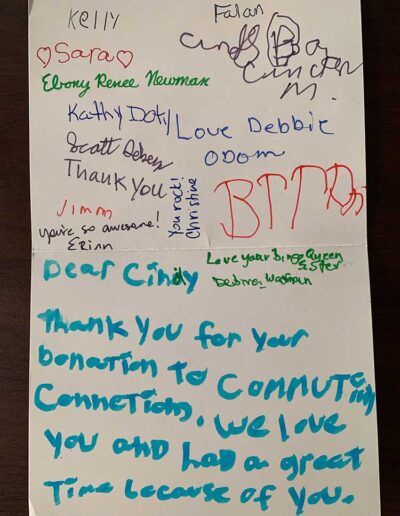 Kelly
Falan
♡Sara♡
Cindy
Ebony Renee Newman
Kathy Doty
Love Debbie
Odom
Scott
Thank You
You rock!
Christine
Jimm
You're so awesome!
Erinn
Love your Bingo Queen
Sister
Debra
Dear Cindy
Thank you for your
Donation to Commute
Connetions. We Love
You and had a great
Time because of you.